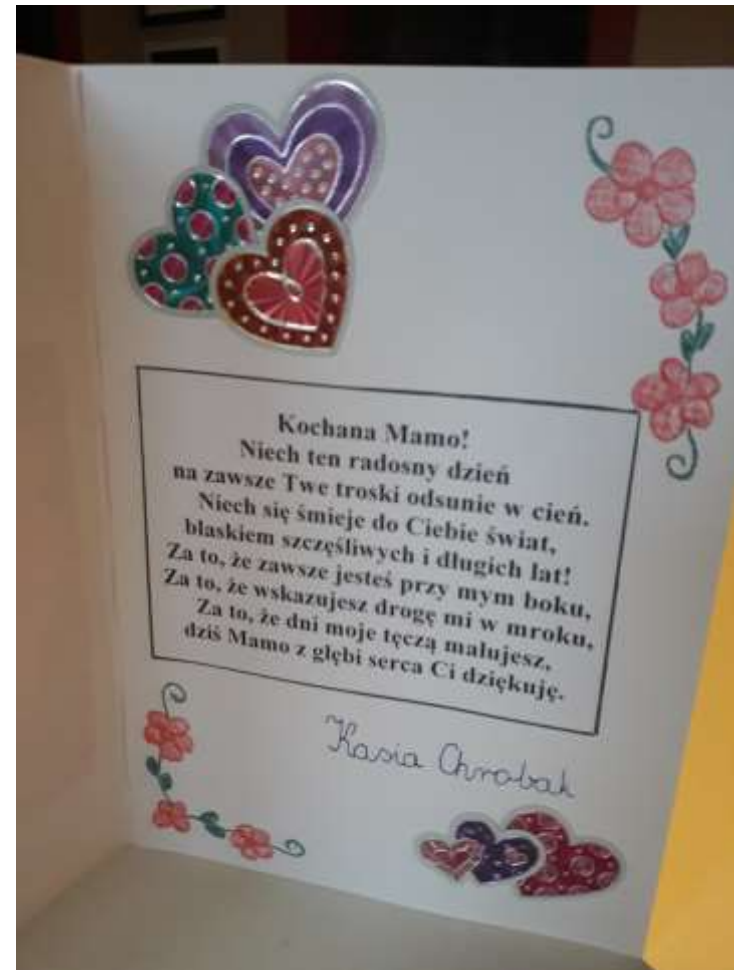 Kochana Mamo!
Niech ten radosny dzień
na zawsze Twe troski odsunie w cień.
Niech się śmieje do Ciebie świat,
blaskiem szczęśliwych i długich lat!
Za to, że zawsze jesteś przy mym boku,
Za to, że wskazujesz drogę mi w mroku,
Za to, że dni moje tęczą malujesz,
dziś Mamo z głębi serca Ci dziękuję.
Kasia Chrobak